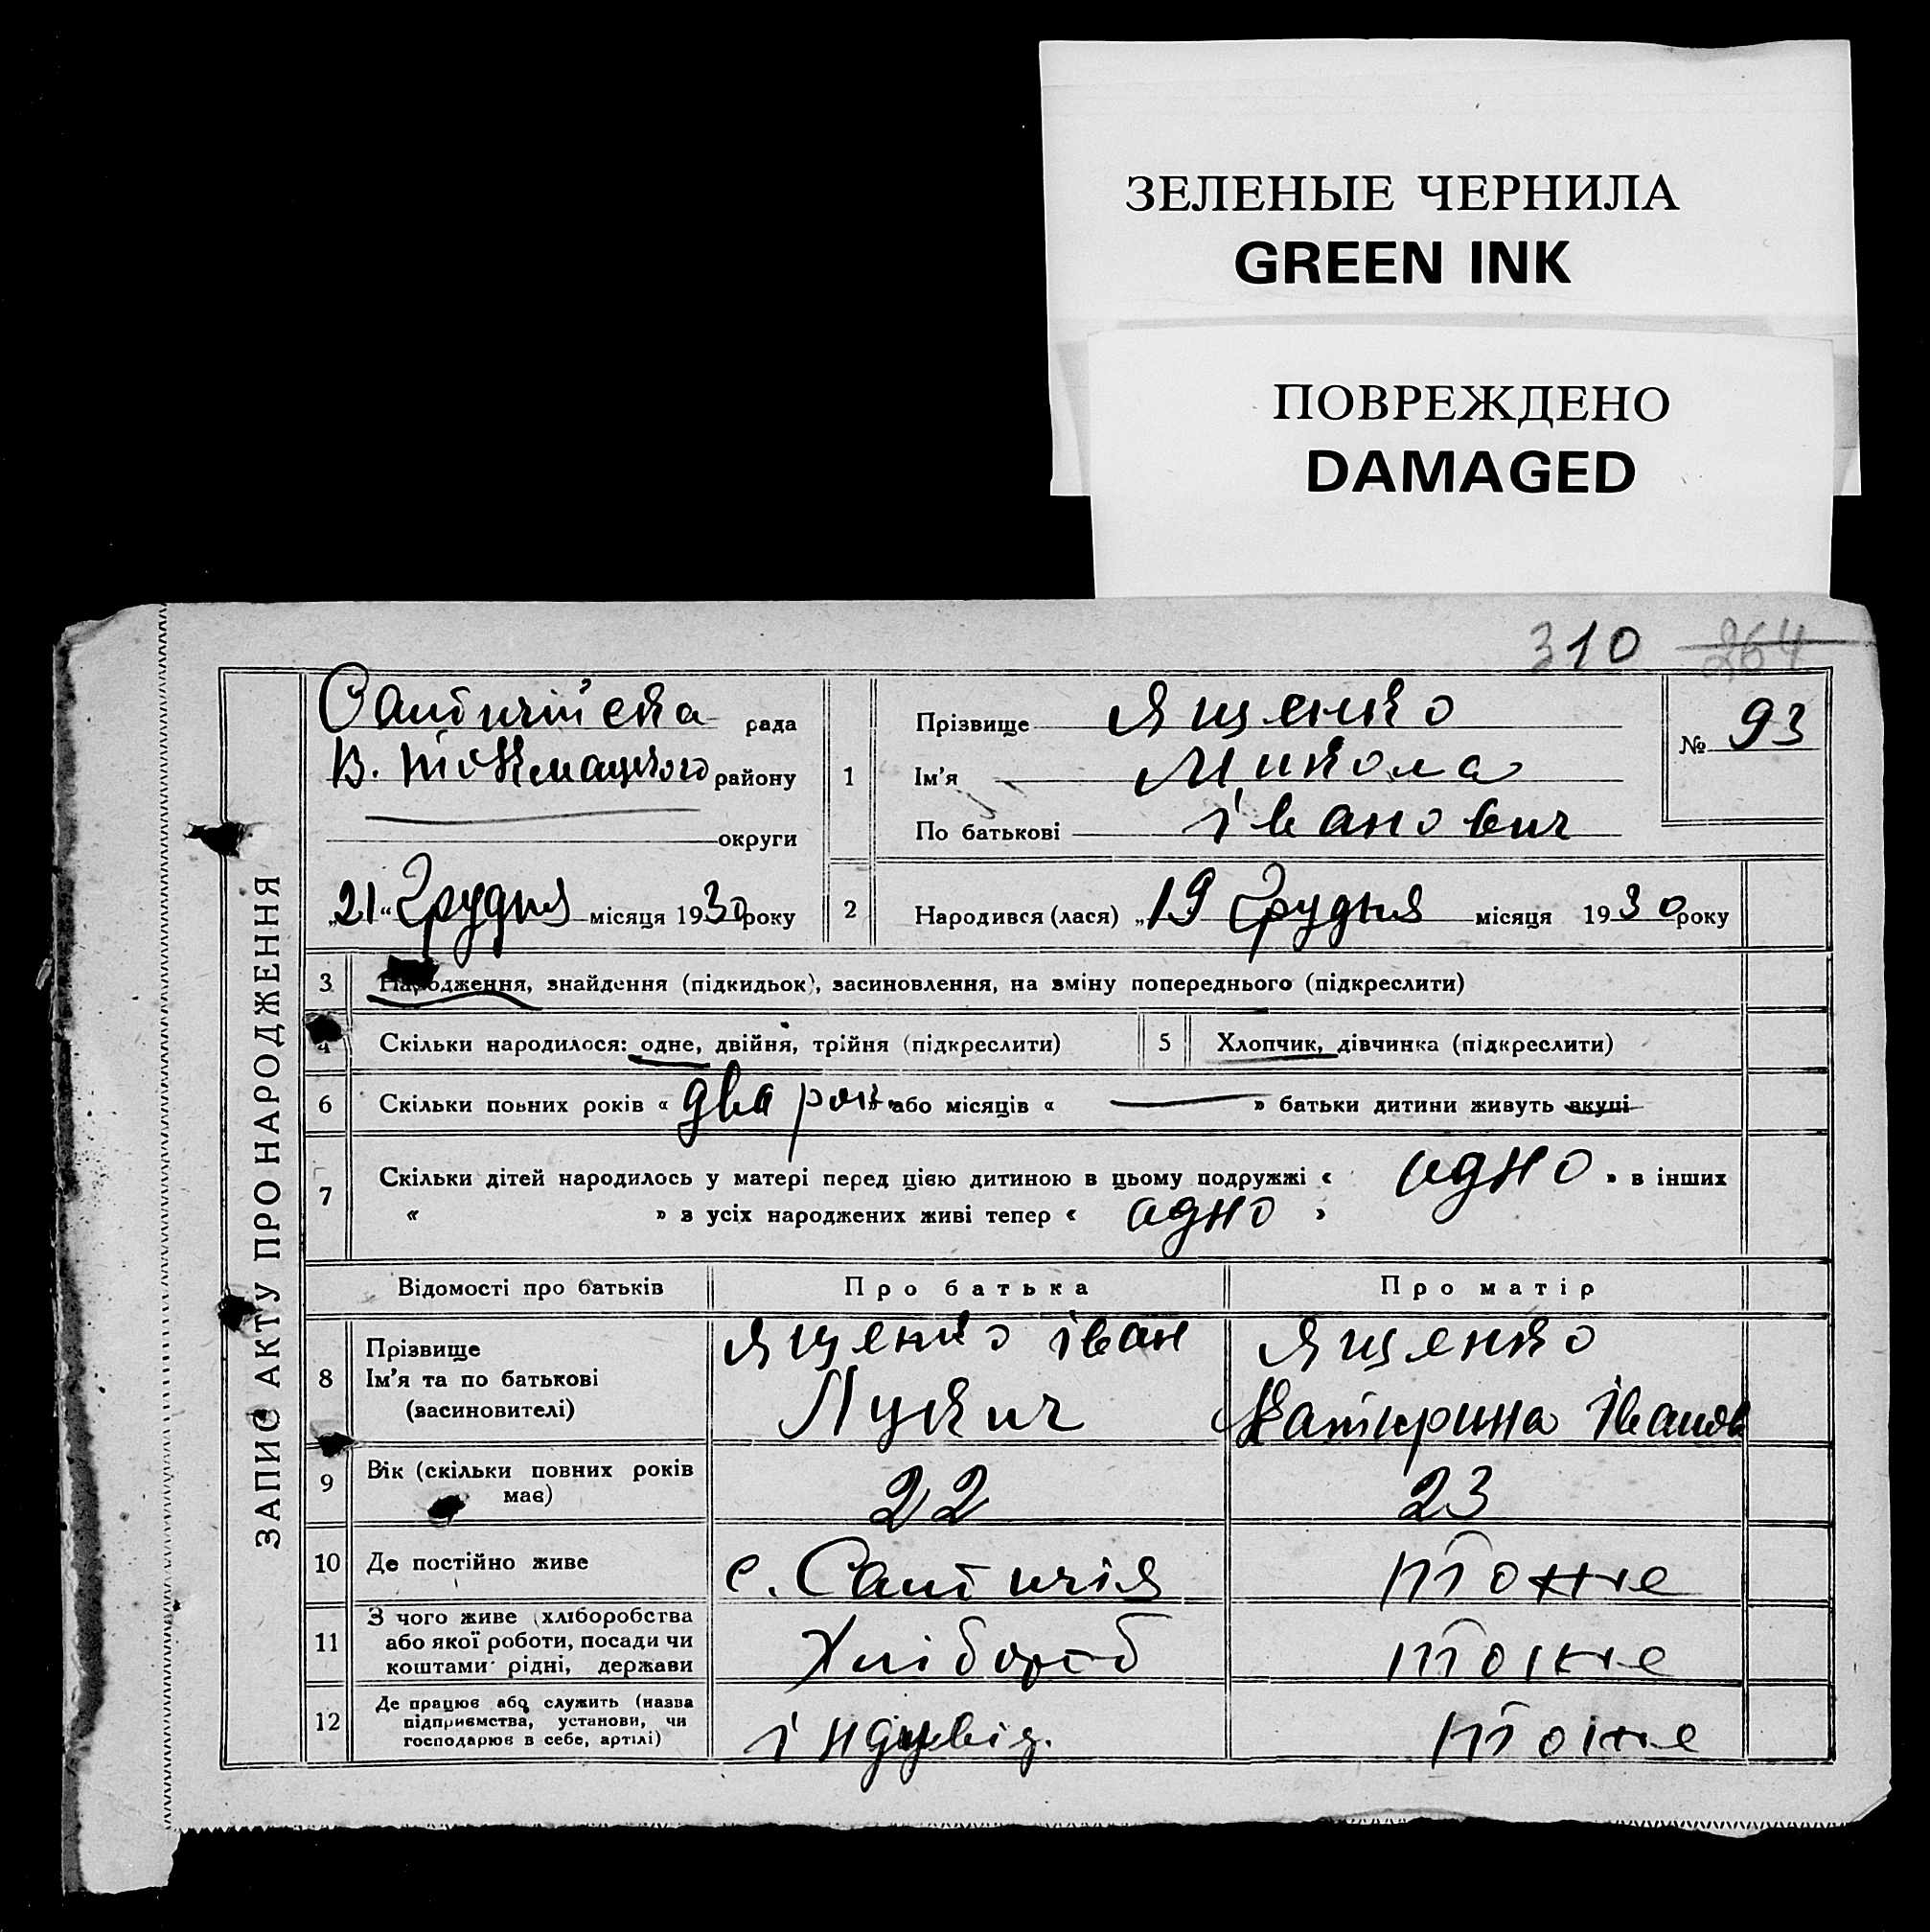 ЗЕЛЕНЫЕ ЧЕРНИЛА
GREEN INK
ПОВРЕЖДЕНО
DAMAGED
310 264
ЗАПИС АКТУ ПРО НАРОДЖЕННЯ
рада
В. Токмацького району
округи
„21“ Грудня місяця 1930 року
1
Прізвище Ященко
Ім'я Микола
По батькові Іванович
№ 93
2 Народився (лася) „19 Грудня місяця 1930 року
3 Народження, знайдення (підкидьок), засиновлення, на зміну попереднього (підкреслити)
4 Скільки народилося: одне, двійня, трійня (підкреслити) 5 Хлопчик, дівчинка (підкреслити)
6 Скільки повних років « два роки » або місяців « » батьки дитини живуть вкупі
7 Скільки дітей народилось у матері перед цією дитиною в цьому подружжі « одно » в інших
« » з усіх народжених живі тепер « одно »
Відомості про батьків Про батька Про матір
8 Прізвище
Ім'я та по батькові
(васиновителі)
Ященко Іван
Лукич
Ященко
Катирина Іванов
9 Вік (скільки повних років
має)
22 23
10 Де постійно живе с. тоже
11 З чого живе (хліборобства
або якої роботи, посади чи
коштами рідні, держави
Хлібороб тоже
12 Де працює або служить (назва
підприємства, установи, чи
господарює в себе, артілі)
індивід. тоже